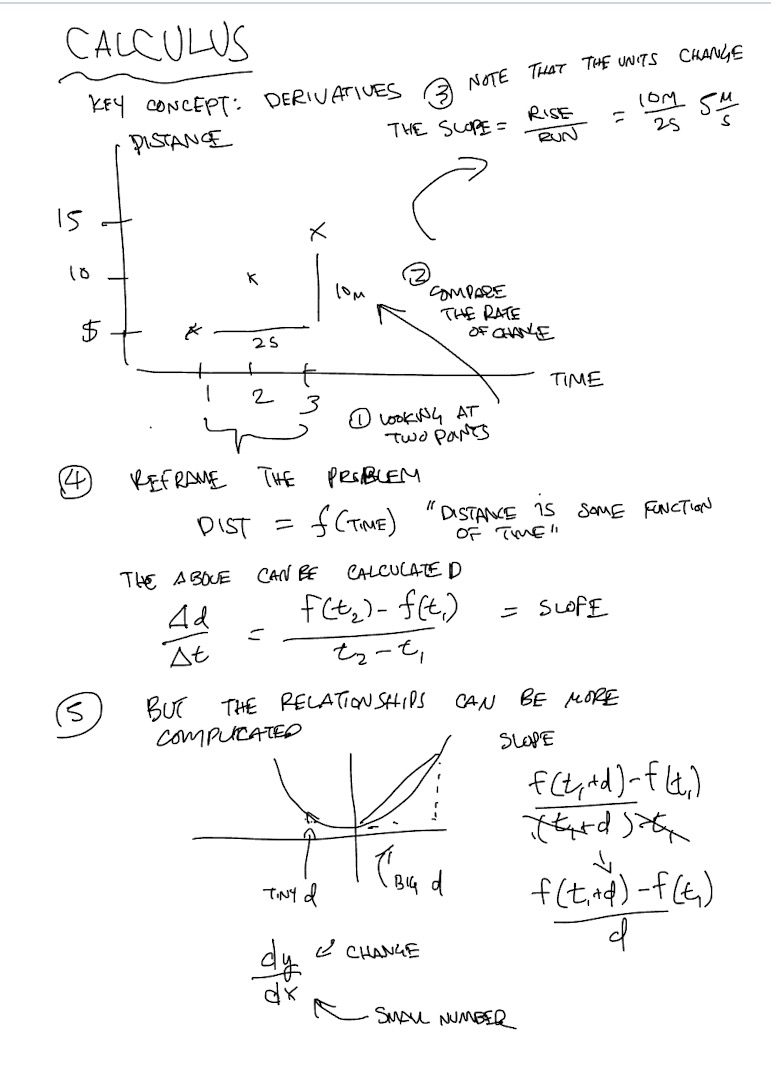 CALCULUS
KEY CONCEPT: DERIVATIVES
③ NOTE THAT THE UNITS CHANGE
THE SLOPE = RISE/RUN = 10M/2S 5 M/S
DISTANCE
15
10
5
X
X
X
10M
2S
1 2 3
TIME
② COMPARE
THE RATE
OF CHANGE
① LOOKING AT
TWO POINTS
④ REFRAME THE PROBLEM
DIST = f(TIME) "DISTANCE IS SOME FUNCTION
OF TIME"
THE ABOVE CAN BE CALCULATED
Δd/Δt = f(t₂) - f(t₁) / t₂ - t₁ = SLOPE
⑤ BUT THE RELATIONSHIPS CAN BE MORE
COMPLICATED
SLOPE
f(t₁+d) - f(t₁)
(t₁+d) - t₁
f(t₁+d) - f(t₁)
d
TINY d
BIG d
dy CHANGE
dx
SMALL NUMBER